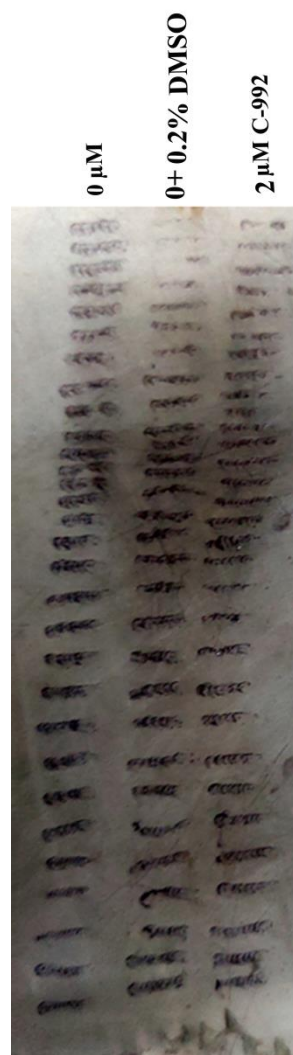 0 µM
0+ 0.2% DMSO
2 µM C-992